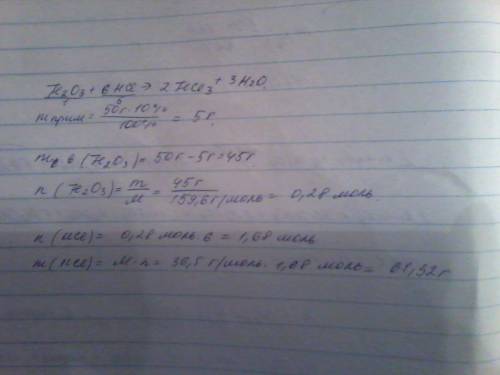 Fe2O3 + 6 HCl → 2 FeCl3 + 3H2O.
m прим = 50г · 10% / 100% = 5г.
m в (Fe2O3) = 50г - 5г = 45г
n (Fe2O3) = m / M = 45г / 159,6г/моль = 0,28 моль.
n (HCl) = 0,28 моль · 6 = 1,68 моль
m (HCl) = M · n = 36,5 г/моль · 1,68 моль = 61,32г